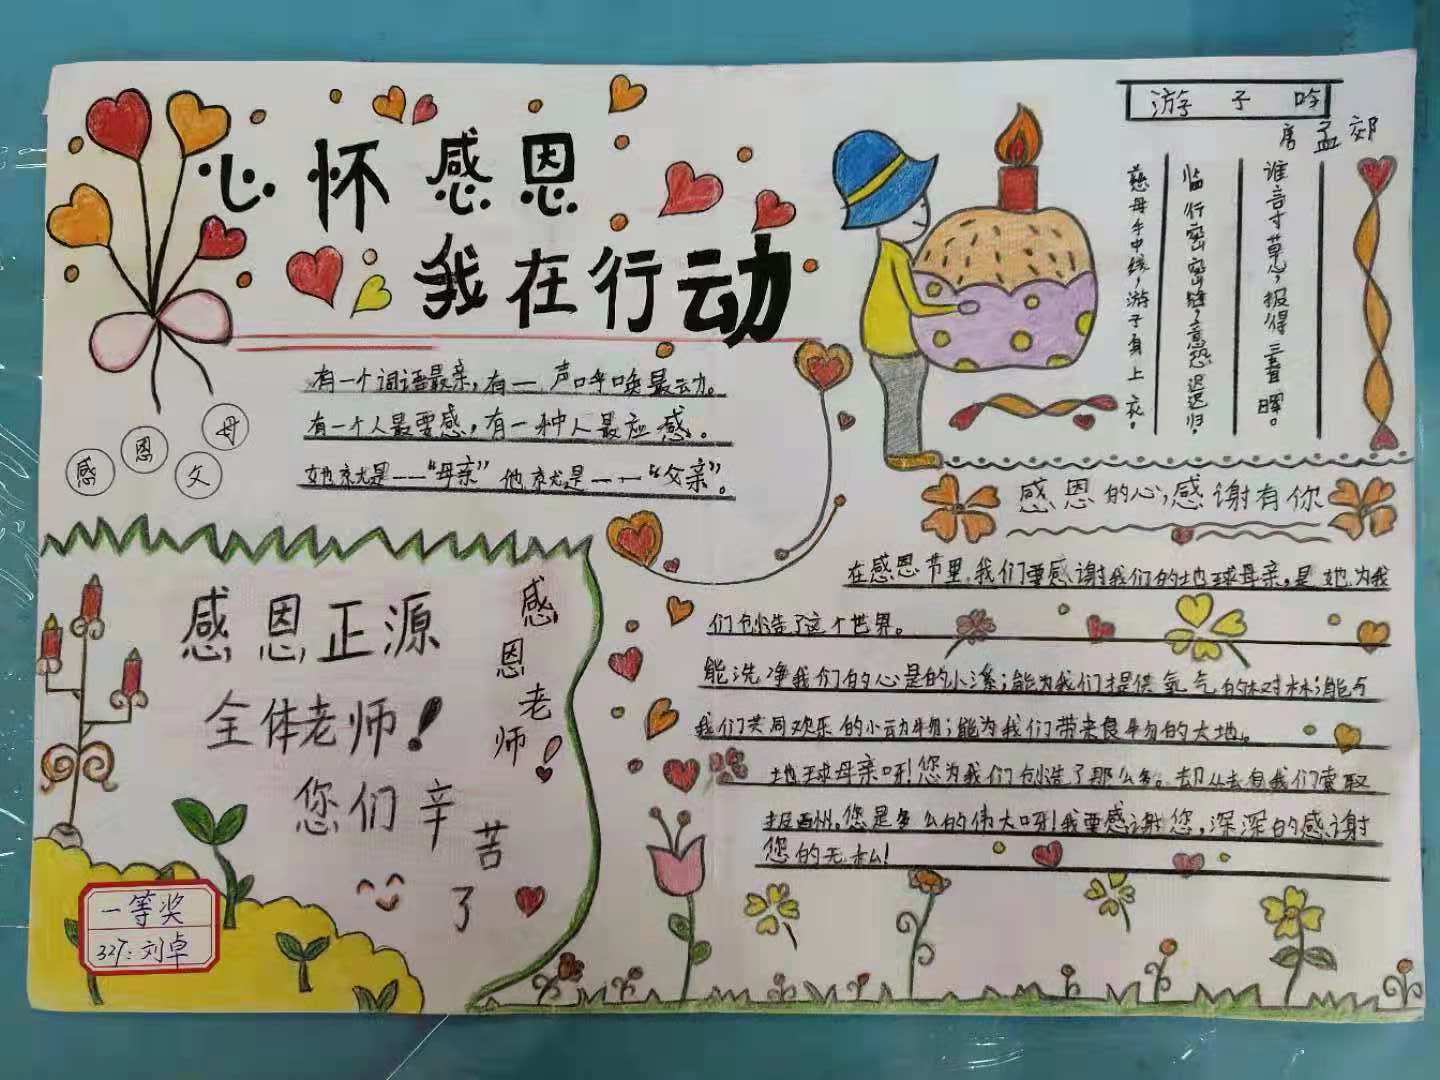 心怀感恩
我在行动
有一个词语最亲,有一声呼唤最动。
有一个人最要感,有一种人最应感。
她就是——“母亲”他就是——“父亲”。
感
恩
父
母
游子吟
唐 孟郊
慈母手中线,游子身上衣。
临行密密缝,意恐迟迟归。
谁言寸草心,报得三春晖。
感恩的心,感谢有你
在感恩节里,我们要感谢我们的地球母亲,是她为我
们创造了这个世界。
能洗净我们的心是的小溪;能为我们提供氧气的树林;能与
我们共同欢乐的小动物;能为我们带来食物的大地。
地球母亲呀!您为我们创造了那么多。却从去自我们索取
报酬。您是多么的伟大呀!我要感谢您,深深的感谢
您的无私!
感恩正源
全体老师!
您们辛苦了
感恩老师!
一等奖
327:刘卓